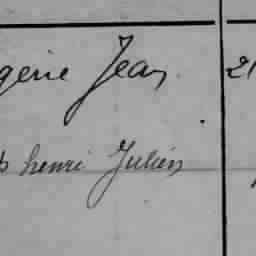 gène Jean 21
henri Julien